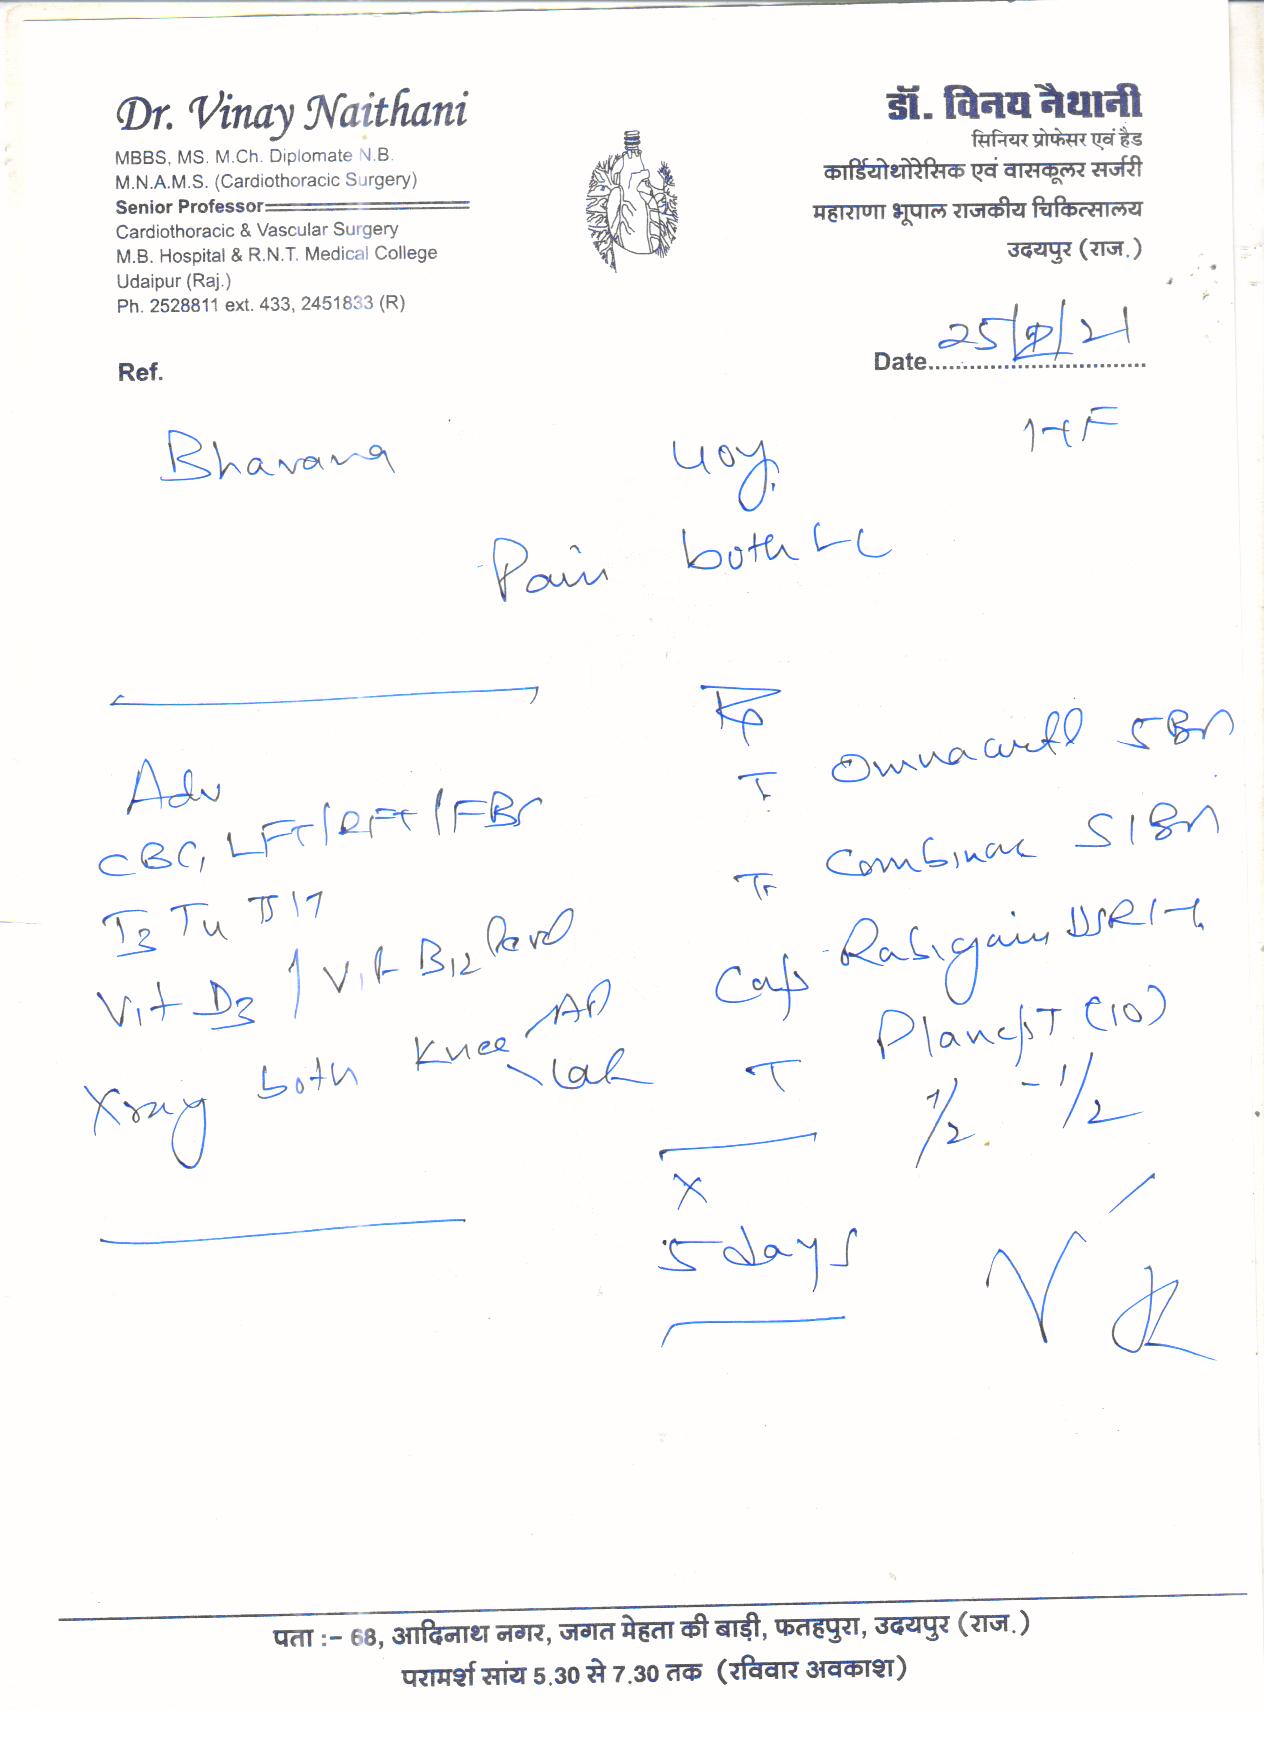 Dr. Vinay Naithani
MBBS, MS. M.Ch. Diplomate N.B.
M.N.A.M.S. (Cardiothoracic Surgery)
Senior Professor
Cardiothoracic & Vascular Surgery
M.B. Hospital & R.N.T. Medical College
Udaipur (Raj.)
Ph. 2528811 ext. 433, 2451833 (R)
डॉ. विनय नैथानी
सिनियर प्रोफेसर एवं हैड
कार्डियोथोरेसिक एवं वासकूलर सर्जरी
महाराणा भूपाल राजकीय चिकित्सालय
उदयपुर (राज.)
Ref.
Date 25/ /21
Bhavana 40y. F
Pain both LL
Adv
CBC, LFT/RFT/FBS
T3 T4
Vit D3 / Vit B12 level
Xray both Knee AP
Lat
Rx
T
T
Cap
T
(10)
1/2 - 1/2
X
5 days
पता :- 68, आदिनाथ नगर, जगत मेहता की बाड़ी, फतहपुरा, उदयपुर (राज.)
परामर्श सांय 5.30 से 7.30 तक (रविवार अवकाश)